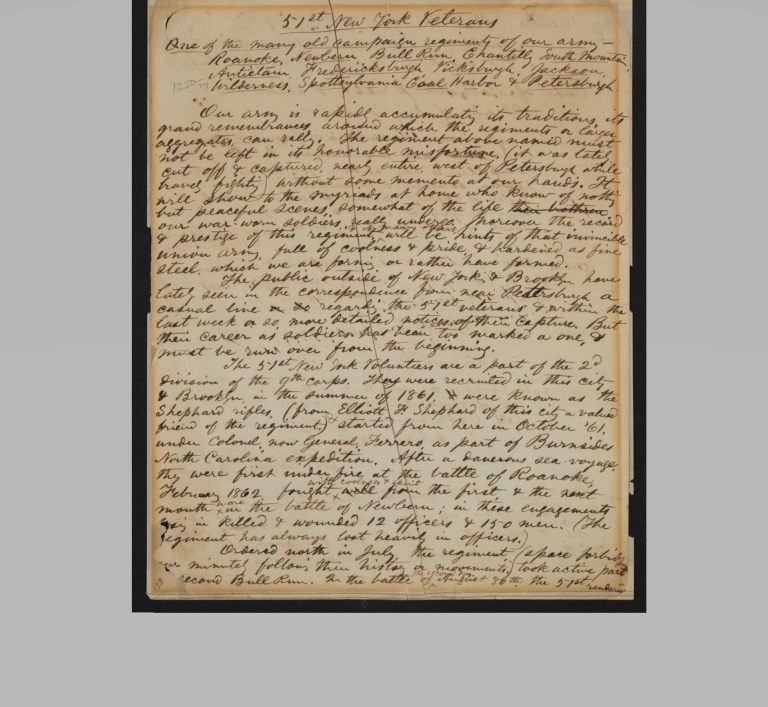 51st New York Veterans
One of the many old campaign regiments of our army –
Roanoke, Newbern Bull Run, Chantilly, South Mountain,
Antietam, Fredericksburgh Vicksburgh, Jackson,
Wilderness, Spottsylvania Coal Harbor & Petersburgh.
Our army is rapidly accumulating its traditions, its
grand remembrances around which the regiments or larger
aggregates, can rally. The regiment above named must
not be left in its honorable misfortune, (it was lately
cut off & captured, nearly entire, west of Petersburgh while
bravely fighting) without some memento at our hands. It
will show to the myriads at home who know of nothing
but peaceful scenes, somewhat of the life their brothers
our war-worn soldiers, really undergo. Moreover the record
& prestige of this regiment, will be hints of that invincible
union army, full of coolness & pride, & hardened as fine
steel, which we are forming or rather have formed.
The public outside of New York & Brooklyn have
lately seen in the correspondence from near Petersburgh a
casual line or so regarding the 51st veterans & within the
last week or so, more detailed notices of their capture. But
their career as soldiers has been too marked a one, &
must be run over from the beginning.
The 51st New York Volunteers are a part of the 2d
division of the 9th corps. They were recruited in this city
& Brooklyn in the summer of 1861, & were known as the
Shephard rifles, (from Elliott F Shephard of this city a valued
friend of the regiment,) started from here in October '61,
under Colonel, now General, Ferrero, as part of Burnsides
North Carolina expedition. After a dangerous sea-voyage,
they were first under fire at the battle of Roanoke,
with coolness & spirit
February 1862 fought well from the first & the next
month more in the battle of Newbern; in these engagements
in killed & wounded 12 officers & 150 men. (The
regiment has always lost heavily in officers.)
Ordered north in July, the regiment, (space forbids
our minutely following their history or movements,) took active part
second Bull Run. In the battle of August 30th the 51st